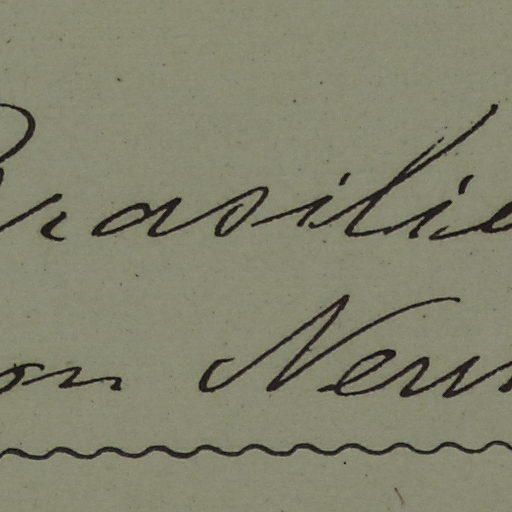 Brasilie
on Neu